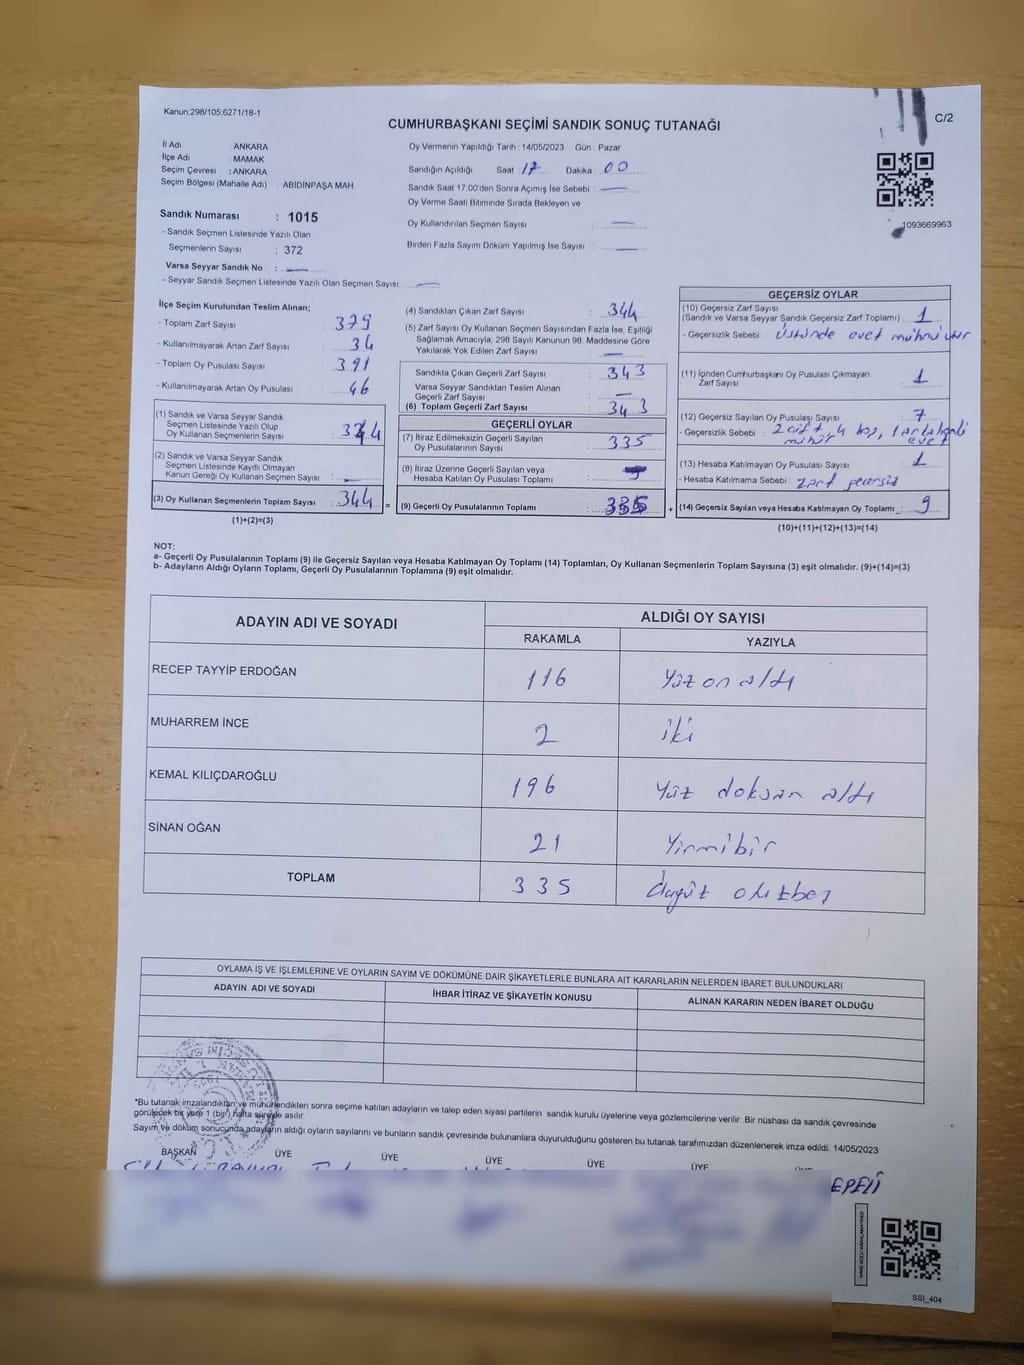 Kanun,298/105;6271/18-1
C/2
CUMHURBAŞKANI SEÇİMİ SANDIK SONUÇ TUTANAĞI
İl Adı : ANKARA
İlçe Adı : MAMAK
Seçim Çevresi : ANKARA
Seçim Bölgesi (Mahalle Adı) : ABİDİNPAŞA MAH.
Oy Vermenin Yapıldığı Tarih : 14/05/2023 Gün : Pazar
Sandığın Açıldığı Saat : 17 Dakika : 00
Sandık Saat 17.00'den Sonra Açımış İse Sebebi :
Oy Verme Saati Bitiminde Sırada Bekleyen ve
Oy Kullandırılan Seçmen Sayısı :
Birden Fazla Sayım Döküm Yapılmış İse Sayısı :
1093669963
Sandık Numarası : 1015
- Sandık Seçmen Listesinde Yazılı Olan
Seçmenlerin Sayısı : 372
Varsa Seyyar Sandık No :
- Seyyar Sandık Seçmen Listesinde Yazılı Olan Seçmen Sayısı:
İlçe Seçim Kurulundan Teslim Alınan;
- Toplam Zarf Sayısı : 379
- Kullanılmayarak Artan Zarf Sayısı : 34
- Toplam Oy Pusulası Sayısı : 391
- Kullanılmayarak Artan Oy Pusulası : 46
(1) Sandık ve Varsa Seyyar Sandık
Seçmen Listesinde Yazılı Olup
Oy Kullanan Seçmenlerin Sayısı : 344
(2) Sandık ve Varsa Seyyar Sandık
Seçmen Listesinde Kayıtlı Olmayan
Kanun Gereği Oy Kullanan Seçmen Sayısı :
(3) Oy Kullanan Seçmenlerin Toplam Sayısı : 344 =
(1)+(2)=(3)
(4) Sandıktan Çıkan Zarf Sayısı : 344
(5) Zarf Sayısı Oy Kullanan Seçmen Sayısından Fazla İse, Eşitliği
Sağlamak Amacıyla, 298 Sayılı Kanunun 98. Maddesine Göre
Yakılarak Yok Edilen Zarf Sayısı :
Sandıkta Çıkan Geçerli Zarf Sayısı : 343
Varsa Seyyar Sandıktan Teslim Alınan
Geçerli Zarf Sayısı :
(6) Toplam Geçerli Zarf Sayısı : 343
GEÇERLİ OYLAR
(7) İtiraz Edilmeksizin Geçerli Sayılan
Oy Pusulalarının Sayısı : 335
(8) İtiraz Üzerine Geçerli Sayılan veya
Hesaba Katılan Oy Pusulası Toplamı :
(9) Geçerli Oy Pusulalarının Toplamı : 335 +
GEÇERSİZ OYLAR
(10) Geçersiz Zarf Sayısı
(Sandık ve Varsa Seyyar Sandık Geçersiz Zarf Toplamı) : 1
- Geçersizlik Sebebi : Üstünde evet mührü var
(11) İçinden Cumhurbaşkanı Oy Pusulası Çıkmayan
Zarf Sayısı : 1
(12) Geçersiz Sayılan Oy Pusulası Sayısı : 7
- Geçersizlik Sebebi : 2 çift, 4 boş, 1
mühür evet
(13) Hesaba Katılmayan Oy Pusulası Sayısı : 1
- Hesaba Katılmama Sebebi : zarf geçersiz
(14) Geçersiz Sayılan veya Hesaba Katılmayan Oy Toplamı : 9
(10)+(11)+(12)+(13)=(14)
NOT:
a- Geçerli Oy Pusulalarının Toplamı (9) ile Geçersiz Sayılan veya Hesaba Katılmayan Oy Toplamı (14) Toplamları, Oy Kullanan Seçmenlerin Toplam Sayısına (3) eşit olmalıdır. (9)+(14)=(3)
b- Adayların Aldığı Oyların Toplamı, Geçerli Oy Pusulalarının Toplamına (9) eşit olmalıdır.
ADAYIN ADI VE SOYADI
ALDIĞI OY SAYISI
RAKAMLA YAZIYLA
RECEP TAYYİP ERDOĞAN 116 Yüz on altı
MUHARREM İNCE 2 iki
KEMAL KILIÇDAROĞLU 196 Yüz doksan altı
SİNAN OĞAN 21 Yirmibir
TOPLAM 335 üçyüz otuzbeş
OYLAMA İŞ VE İŞLEMLERİNE VE OYLARIN SAYIM VE DÖKÜMÜNE DAİR ŞİKAYETLERLE BUNLARA AİT KARARLARIN NELERDEN İBARET BULUNDUKLARI
ADAYIN ADI VE SOYADI İHBAR İTİRAZ VE ŞİKAYETİN KONUSU ALINAN KARARIN NEDEN İBARET OLDUĞU
*Bu tutanak imzalandıktan ve mühürlendikten sonra seçime katılan adayların ve talep eden siyasi partilerin sandık kurulu üyelerine veya gözlemcilerine verilir .Bir nüshası da sandık çevresinde
görülecek bir yere 1 (bir) hafta süreyle asılır.
Sayım ve döküm sonucunda adayların aldığı oyların sayılarını ve bunların sandık çevresinde bulunanlara duyurulduğunu gösteren bu tutanak tarafımızdan düzenlenerek imza edildi. 14/05/2023
BAŞKAN ÜYE ÜYE ÜYE ÜYE ÜYE
SSI_404